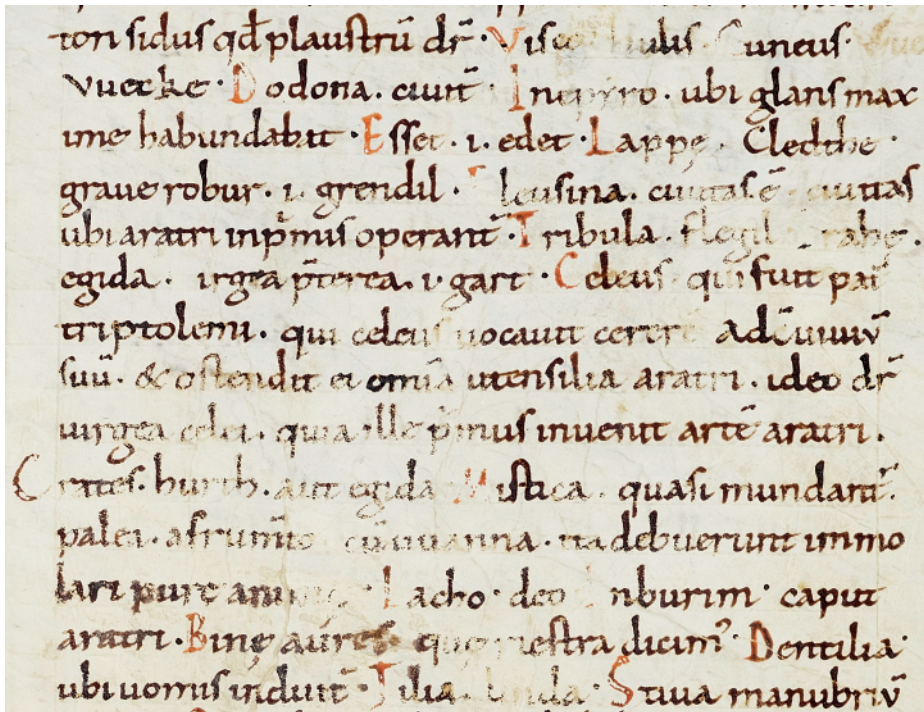 ton sidus qd̄ plaustrū dr̄ · Viscū
Vuecke · Dodona . ciuit̄ In epyro . ubi glans max
ime habundabat · Esset . i . edet · Lappę . Cledthe ·
graue robur . i . grendil · leusina . ciuitas ē ciuitas
ubi aratri inp̄mis operant̄ · Tribula . flegil rahę .
egida . irgea p̄terea . i . gart · Celeus qui fuit pat̄
triptolemi . qui celeus uocauit cererē ad c̄uiuiū
suū . & ostendit ei omīa utensilia aratri . ideo dr̄
uirgea celei . quia ille p̄mus inuenit artē aratri .
Crates . hurth . aut egida Mistica . quasi mundant̄ .
palea . a frum̄to cū uuanna . ita debuerunt immo
lari pure animę Iacho · deo Inburim · caput
aratri . Binę aures quę riestra dicim̄ · Dentilia ·
ubi uomis induit̄ · Tilia . Stiua manubriū